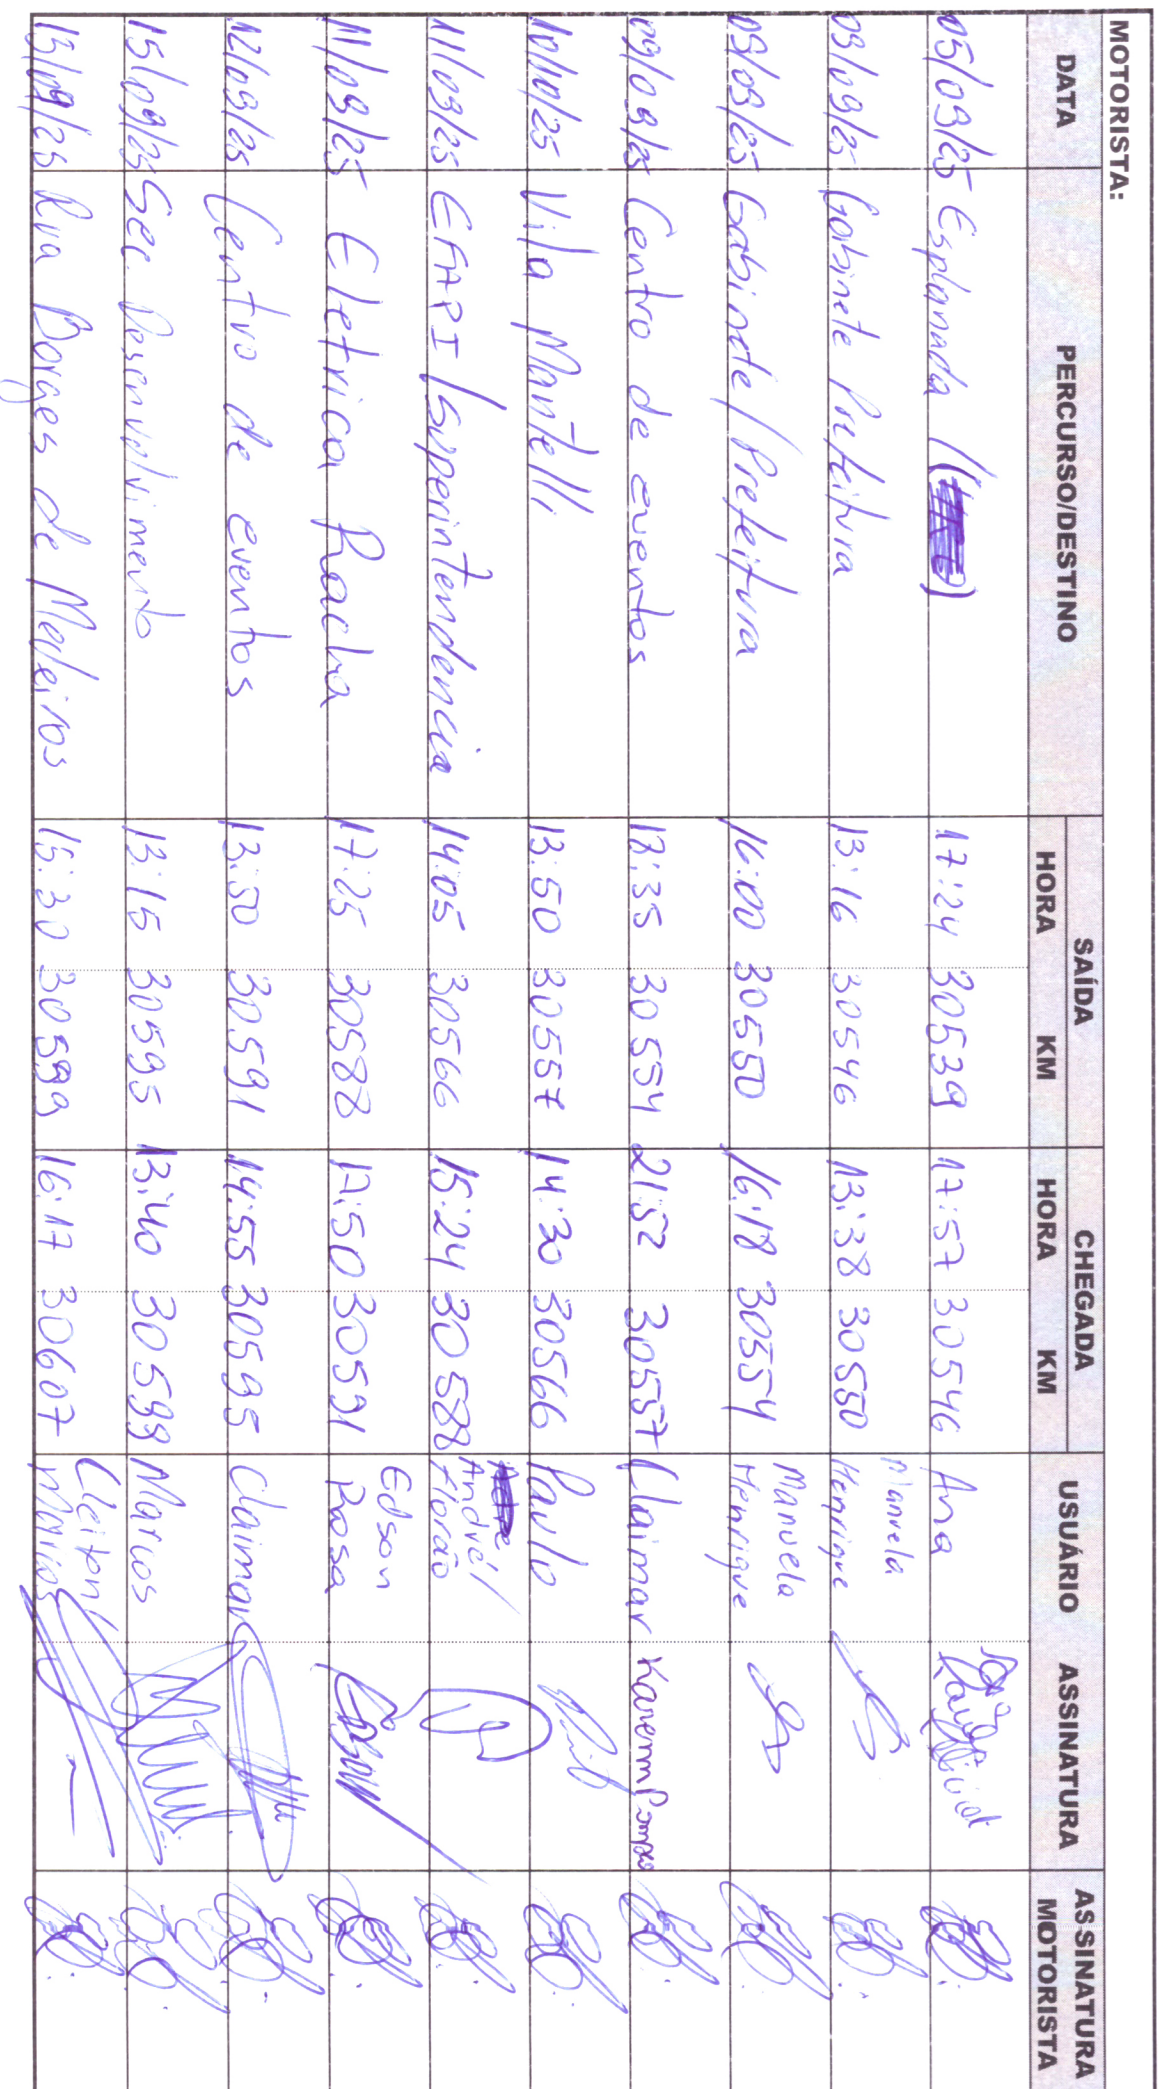 MOTORISTA:
DATA PERCURSO/DESTINO SAÍDA HORA KM CHEGADA HORA KM USUÁRIO ASSINATURA ASSINATURA MOTORISTA
05/09/25 Esplanada 17:24 30539 17:57 30546 Ana
09/09/25 Gabinete Prefeitura 13:16 30546 13:38 30550 Manuela Henrique
09/09/25 Gabinete/Prefeitura 16:00 30550 16:18 30554 Manuela Henrique
09/09/25 Centro de eventos 13:35 30554 21:52 30557 Claimar Karenm Pompeo
10/10/25 Vila Mantelli 13:50 30557 14:30 30566 Paulo
11/09/25 EFAPI/Superintendencia 14:05 30566 15:24 30588 Andriel/ Florão
11/09/25 Eletrica Rocha 17:25 30588 17:50 30591 Edson Rosa Edson
12/09/25 Centro de eventos 13:50 30591 14:55 30595 Claimar
15/09/25 Sec. Desenvolvimento 13:15 30595 13:40 30599 Marcos
15/09/25 Rua Borges de Medeiros 15:30 30599 16:17 30607 Cleiton/ Marcos